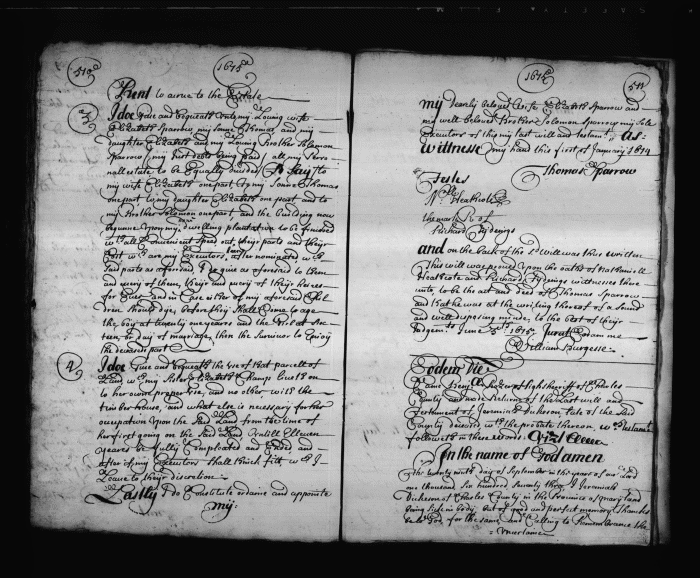 510
1675
Rent to acrue to the Estate
3
I doe Give and bequeath unto my Loving wife
Elizabeth Sparrow my Sonne Thomas, and my
daughter Elizabeth and my Loving Brother Solomon
Sparrow, my Just debts being paid, all my Perso
nall estate to be Equally divided To Say To
my wife Elizabeth one part, to my Sonne Thomas
one part to my daughter Elizabeth one part and to
my Brother Solomon one part, and the building now
begunne Upon my dwelling plantation to be finished
wth all Convenient Speed out their parts and their
are my Executors, after nominated
said parts as aforesaid I do give as aforesaid to them
and every of them, their and every of their heires
for Ever and in Case Either of my aforesaid Chil
dren should dye, before they Shall Come to age
the boy at twenty one yeares and the Girl at Six
teen or day of marriage, then the Survivor to Enjoy
the deceased part
4
I doe Give and bequeath the use of that parcell of
Land my Sister Elizabeth Champs lives on
to her owne proper Use, and no other with the
timber trees, and what else is necessary for her
occupation Upon the said Land from the time of
her first going on the said Land Untill Elleven
yeares be fully Compleated and Ended and
after if my Executors shall think fitt
Leave to their discretion
Lastly I do Constitute ordaine and appointe
my:
1675
511
my Dearly beloved Wife Elizabeth Sparrow and
my well beloved Brother Solomon Sparrow my Sole
Executors of this my last will and testamt. As
Wittness my hand this first of January 1674
Thomas Sparrow
Testes
Heathcote
the mark R of
Richard Gydenigs
and on the back of the sd. Will was thus written
This will was proved Upon the oaths of Nathaniell
Heathcote and Richard Gydenigs wittnesses there
unto, to be the act and deed of Thomas Sparrow
and that he was at the writing thereof of a sound
and well disposing minde, to the best of their
Judgemt. June 5th 1675. Jurat Coram me
William Burgesse
Eodem Die
Came high sheriff of Charles
County and made Returne of the Last will and
Testament of Jeremiah Dickeson, late of the said
County deceased, wth the probate thereon, wch. testamt.
followeth in these words
In the name of God amen
the twenty day of September in the yeare of our Lord
one thousand Six hundred Seventy three I Jeremiah
Dickeson of Charles County in the Province of Maryland
being Sick in body, but of good and perfect memory, thanks
be to God for the same and Calling to Remembrance the